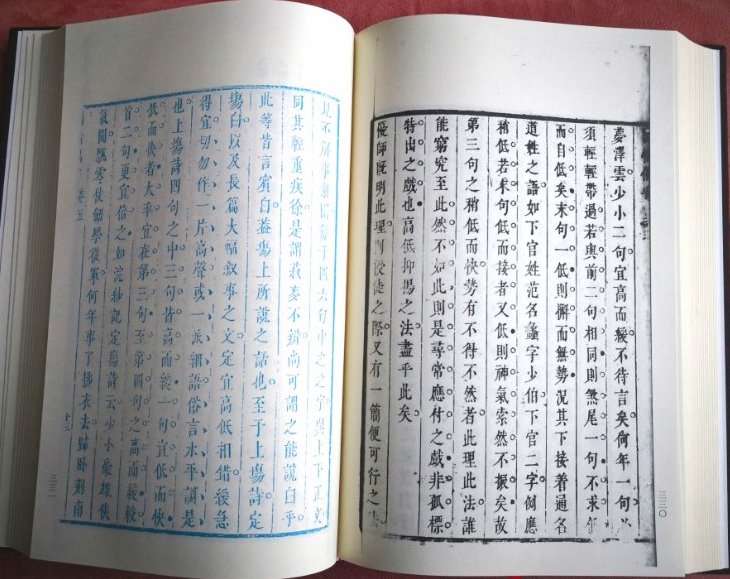 夢澤雲少小二句宜高而緩不待言矣何年一句必
須輕輕帶過若與前二句相同則煞尾一句不求低
而自低矣末句一低則懈而無勢況其下接着通名
道姓之語如下官姓范名蠡字少伯下官二字例應
稍低若末句低而接者又低則神氣索然不振矣故
第三句之稍低而快勢有不得不然者此理此法誰
能窮究至此然不如此則是尋常應付之戲非孤標
特出之戲也高低抑揚之法盡乎此矣
優師既明此理則授徒之際又有一簡便可行之法
三三〇
于四六句中之之字與上下正文
同其輕重疾徐是謂菽麥不辨尚可謂之能說白乎
此等皆言賓白蓋場上所說之話也至于上場詩定
場白以及長篇大幅敘事之文定宜高低相錯緩急
得宜切勿作一片高聲或一派細語俗言水平調是
也上場詩四句之中三句皆高而緩一句宜低而快
低而快者大率宜在第三句至第四句之高而緩較
首二句更宜倍之如浣紗記定場詩云少小豪雄俠
氣聞飄零仗劍學從軍何年事了拂衣去歸臥荊南
卷五